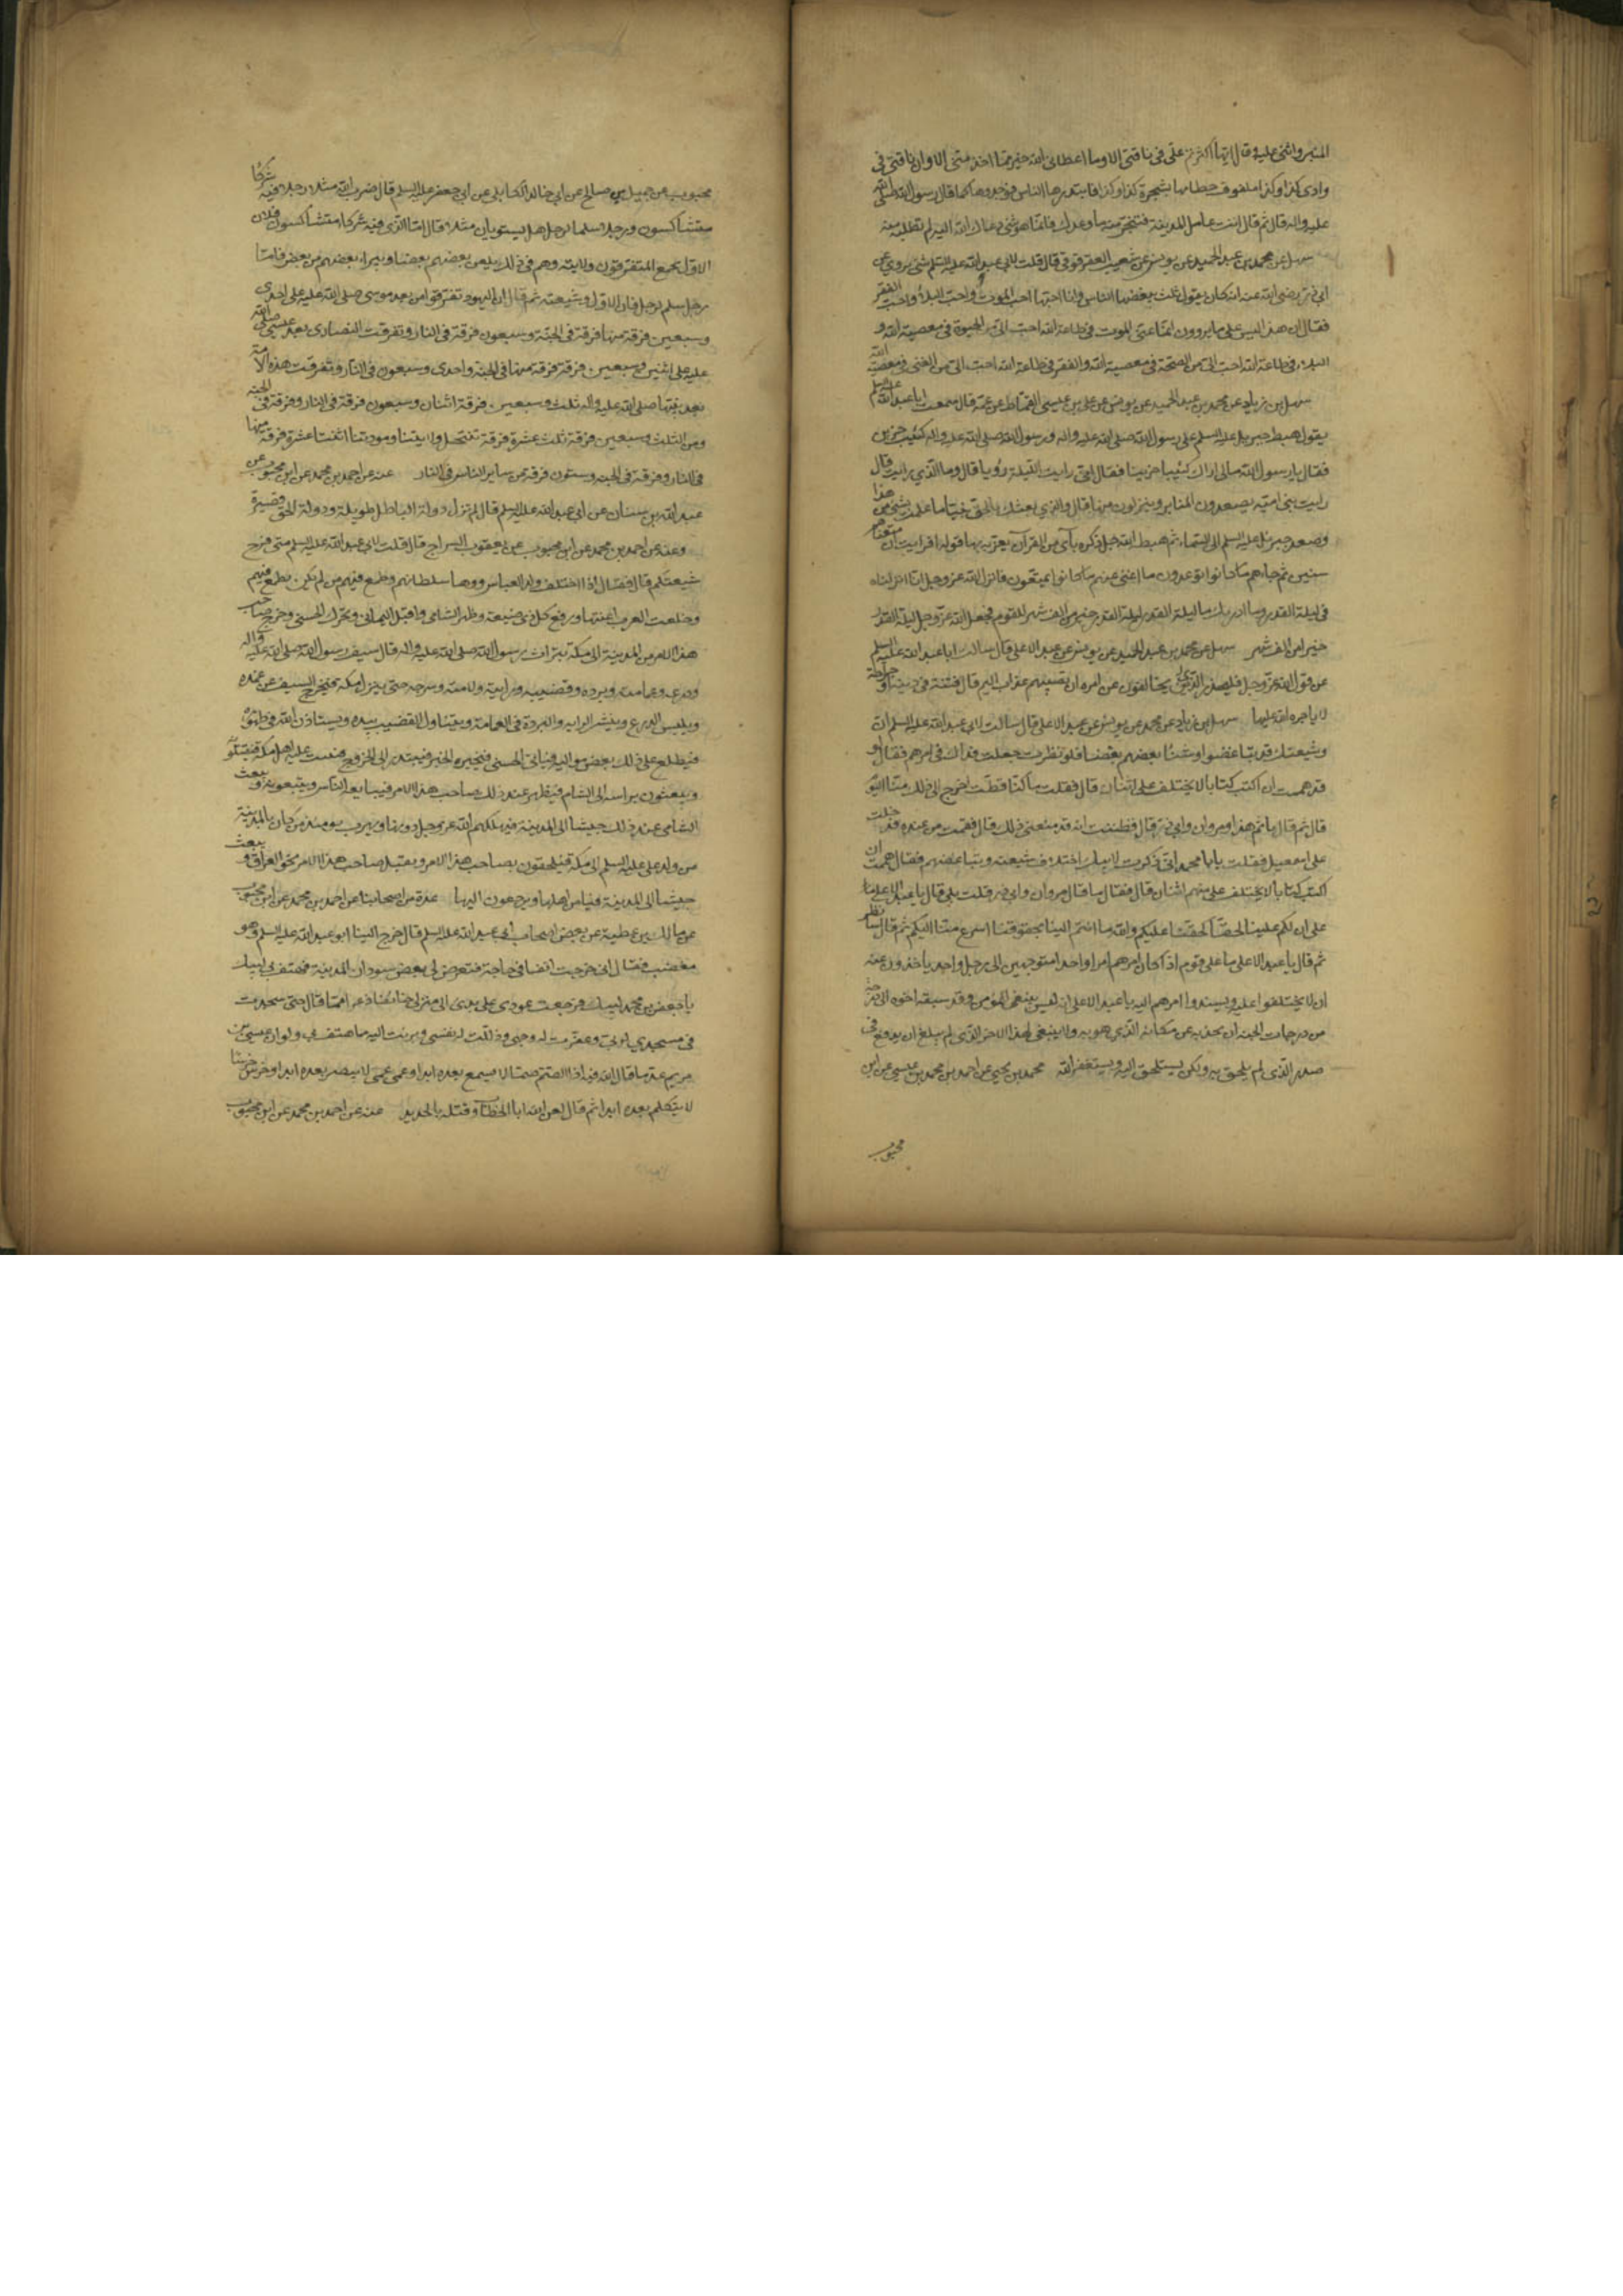 المنبر واثنى عليه وقال ايها الناس اكثرتم علي في ناقتي الا وما اعطاني الله خير مما اخذ مني الا وان ناقتي في
وادي كذا وكذا ملفوف خطامها بشجرة كذا وكذا فابتدرها الناس فوجدوها كما قال رسول الله صلى الله
عليه واله قال ثم قال ائت عامل المدينة فتنجز منه ما وعدك فانما هو شئ دعاك الله اليه لم تطلبه منه
سهل عن محمد بن عبد الحميد عن يونس عن شعيب العقرقوفي قال قلت لابي عبد الله عليه السلم شئ يروى عن
ابي ذر رضي الله عنه انه كان يقول ثلث يبغضها الناس وانا احبها احب الموت واحب البلاء واحب الفقر
فقال ان هذا ليس على ما يروون انما عنى الموت في طاعة الله احب الي من الحيوة في معصية الله و
البلاء في طاعة الله احب الي من الصحة في معصية الله والفقر في طاعة الله احب الي من الغنى في معصية الله
سهل بن زياد عن محمد بن عبد الحميد عن يونس عن علي بن عيسى القماط عن عمه قال سمعت ابا عبد الله عليه السلم
يقول هبط جبريل عليه السلم على رسول الله صلى الله عليه واله ورسول الله صلى الله عليه واله كئيب حزين
فقال يا رسول الله مالي اراك كئيبا حزينا فقال اني رايت الليلة رؤيا قال وما الذي رايت قال
رايت بني امية يصعدون المنابر وينزلون منها قال والذي بعثك بالحق نبيا ما علمت بشئ من هذا
وصعد جبرئيل عليه السلم الى السماء ثم هبط الله جل ذكره بآي من القرآن يعزيه بها قوله افرايت ان متعناهم
سنين ثم جاءهم ما كانوا توعدون ما اغنى عنهم ما كانوا يمتعون فانزل الله عز وجل انا انزلناه
في ليلة القدر وما ادريك ما ليلة القدر ليلة القدر خير من الف شهر للقوم فجعل الله عز وجل ليلة القدر
خيرا من الف شهر سهل عن محمد بن عبد الحميد عن يونس عن عبد الاعلى قال سالت ابا عبد الله عليه السلم
عن قول الله عز وجل فليحذر الذين يخالفون عن امره ان تصيبهم عذاب اليم قال فتنة في دينه او جراحة
لا ياجره الله عليها سهل بن زياد عن محمد عن يونس عن عبد الاعلى قال سالت لابي عبد الله عليه السلم ان
وشيعتك قد تباغضوا وشنأ بعضهم بعضا فلو نظرت جعلت فداك في امرهم فقال لو
قد هممت ان اكتب كتابا لا يختلف علي اثنان قال فقلت ما كنا قط احوج الى ذلك منا اليوم
قال ثم قال انى هذا ومروان وابن ذر قال فظننت انه قد منعني ذلك قال فقمت من عنده فدخلت
على اسمعيل فقلت يا با محمد اني ذكرت لابيك اختلاف شيعته وتباغضهم فقال هممت ان
اكتب كتابا لا يختلف علي منهم اثنان قال فقال ما قال مروان وابن ذر قلت بلى قال يا عبد الاعلى ان
على ان لكم علينا لحقا كحقنا عليكم والله ما انتم الينا بحقوقنا اسرع منا اليكم ثم قال سانظر
ثم قال يا عبد الاعلى ما على قوم اذا كان امرهم امرا واحدا متوجهين الى رجل واحد ياخذون عنه
ان لا يختلفوا عليه ويسندوا امرهم اليه يا عبد الاعلى انه ليس ينبغي للمؤمن وقد سبقه اخوه الى درجة
من درجات الجنة ان يجذبه عن مكانه الذي هو به ولا ينبغي لهذا الاخر الذي لم يبلغ ان يدفع في
صدر الذي لم يلحق به ولكن يستلحق اليه ويستغفر الله محمد بن يحيى عن احمد بن محمد بن عيسى عن ابن
محبوب
محبوب عن جميل بن صالح عن ابي خالد الكابلي عن ابي جعفر عليه السلم قال ضرب الله مثلا رجلا فيه شركاء
متشاكسون ورجلا سلما لرجل هل يستويان مثلا قال اما الذي فيه شركاء متشاكسون فلان
الاول يجمع المتفرقون ولايته وهم في ذلك يلعن بعضهم بعضا ويبراء بعضهم من بعض فاما
رجل سلم لرجل فان الاول وشيعته ثم قال ان اليهود تفرقوا من بعد موسى صلى الله عليه على احدى
وسبعين فرقة منها فرقة في الجنة وسبعون فرقة في النار وتفرقت النصارى بعد عيسى صلى الله
عليه على اثنين وسبعين فرقة فرقة منها في الجنة واحدى وسبعون في النار وتفرقت هذه الامة
بعد نبيها صلى الله عليه واله ثلث وسبعين فرقة اثنان وسبعون فرقة في النار وفرقة في الجنة
ومن الثلث وسبعين فرقة ثلث عشرة فرقة تنتحل ولايتنا ومودتنا اثنتا عشرة فرقة منها
في النار وفرقة في الجنة وستون فرقة من ساير الناس في النار عنه عن احمد بن محمد عن ابن محبوب عن
عبد الله بن سنان عن ابي عبد الله عليه السلم قال لم تزل دولة الباطل طويلة ودولة الحق قصيرة
وعنه عن احمد بن محمد عن ابن محبوب عن يعقوب السراج قال قلت لابي عبد الله عليه السلم متى فرج
شيعتكم قال فقال اذا اختلف ولد العباس ووها سلطانهم وطمع فيهم من لم يكن يطمع فيهم
وخلعت العرب اعنتها ورفع كل ذي صيصة وظهر الشامي واقبل اليماني وتحرك الحسني وخرج صاحب
هذا الامر من المدينة الى مكة بتراث رسول الله صلى الله عليه واله قال سيف رسول الله صلى الله عليه واله
ودرعه وعمامته وبرده وقضيبه ورايته ولامته وسرجه حتى ينزل مكة فيخرج السيف عن غمده
ويلبس الدرع وينشر الراية والبردة في العمامة ويتناول القضيب بيده ويستاذن الله في ظهوره
فيطلع على ذلك بعض مواليه فياتي الحسني فيخبره الخبر فيبتدر الى الخروج فيثب عليه اهل مكة فيقتلونه
ويبعثون براسه الى الشام فيظهر عند ذلك صاحب هذا الامر فيبايعه الناس ويتبعونه ويبعث
الشامي عند ذلك جيشا الى المدينة فيهلكهم الله عز وجل دونها ويهرب يومئذ من كان بالمدينة
من ولد علي عليه السلم الى مكة فيلحقون بصاحب هذا الامر ويقبل صاحب هذا الامر نحو العراق ويبعث
جيشا الى المدينة فيامن اهلها ويرجعون اليها عدة من اصحابنا عن احمد بن محمد عن ابن محبوب
عن مالك بن عطية عن بعض اصحاب ابي عبد الله عليه السلم قال خرج الينا ابو عبد الله عليه السلم وهو
مغضب فقال اني خرجت انفا في حاجة فتعرض لي بعض سودان المدينة فهتف بي لبيك
يا جعفر بن محمد لبيك فرجعت عودي على بدئي الى منزلي خائفا ذعرا مما قال حتى سجدت
في مسجدي لربي وعفرت له وجهي وذللت له نفسي وبرئت اليه مما هتف بي ولو ان عيسى بن
مريم عدا ما قال الله فيه اذا لصم صما لا يسمع بعده ابدا وعمي عمى لا يبصر بعده ابدا وخرس خرسا
لا يتكلم بعده ابدا ثم قال لعن الله ابا الخطاب وقتله بالحديد عنه عن احمد بن محمد عن ابن محبوب